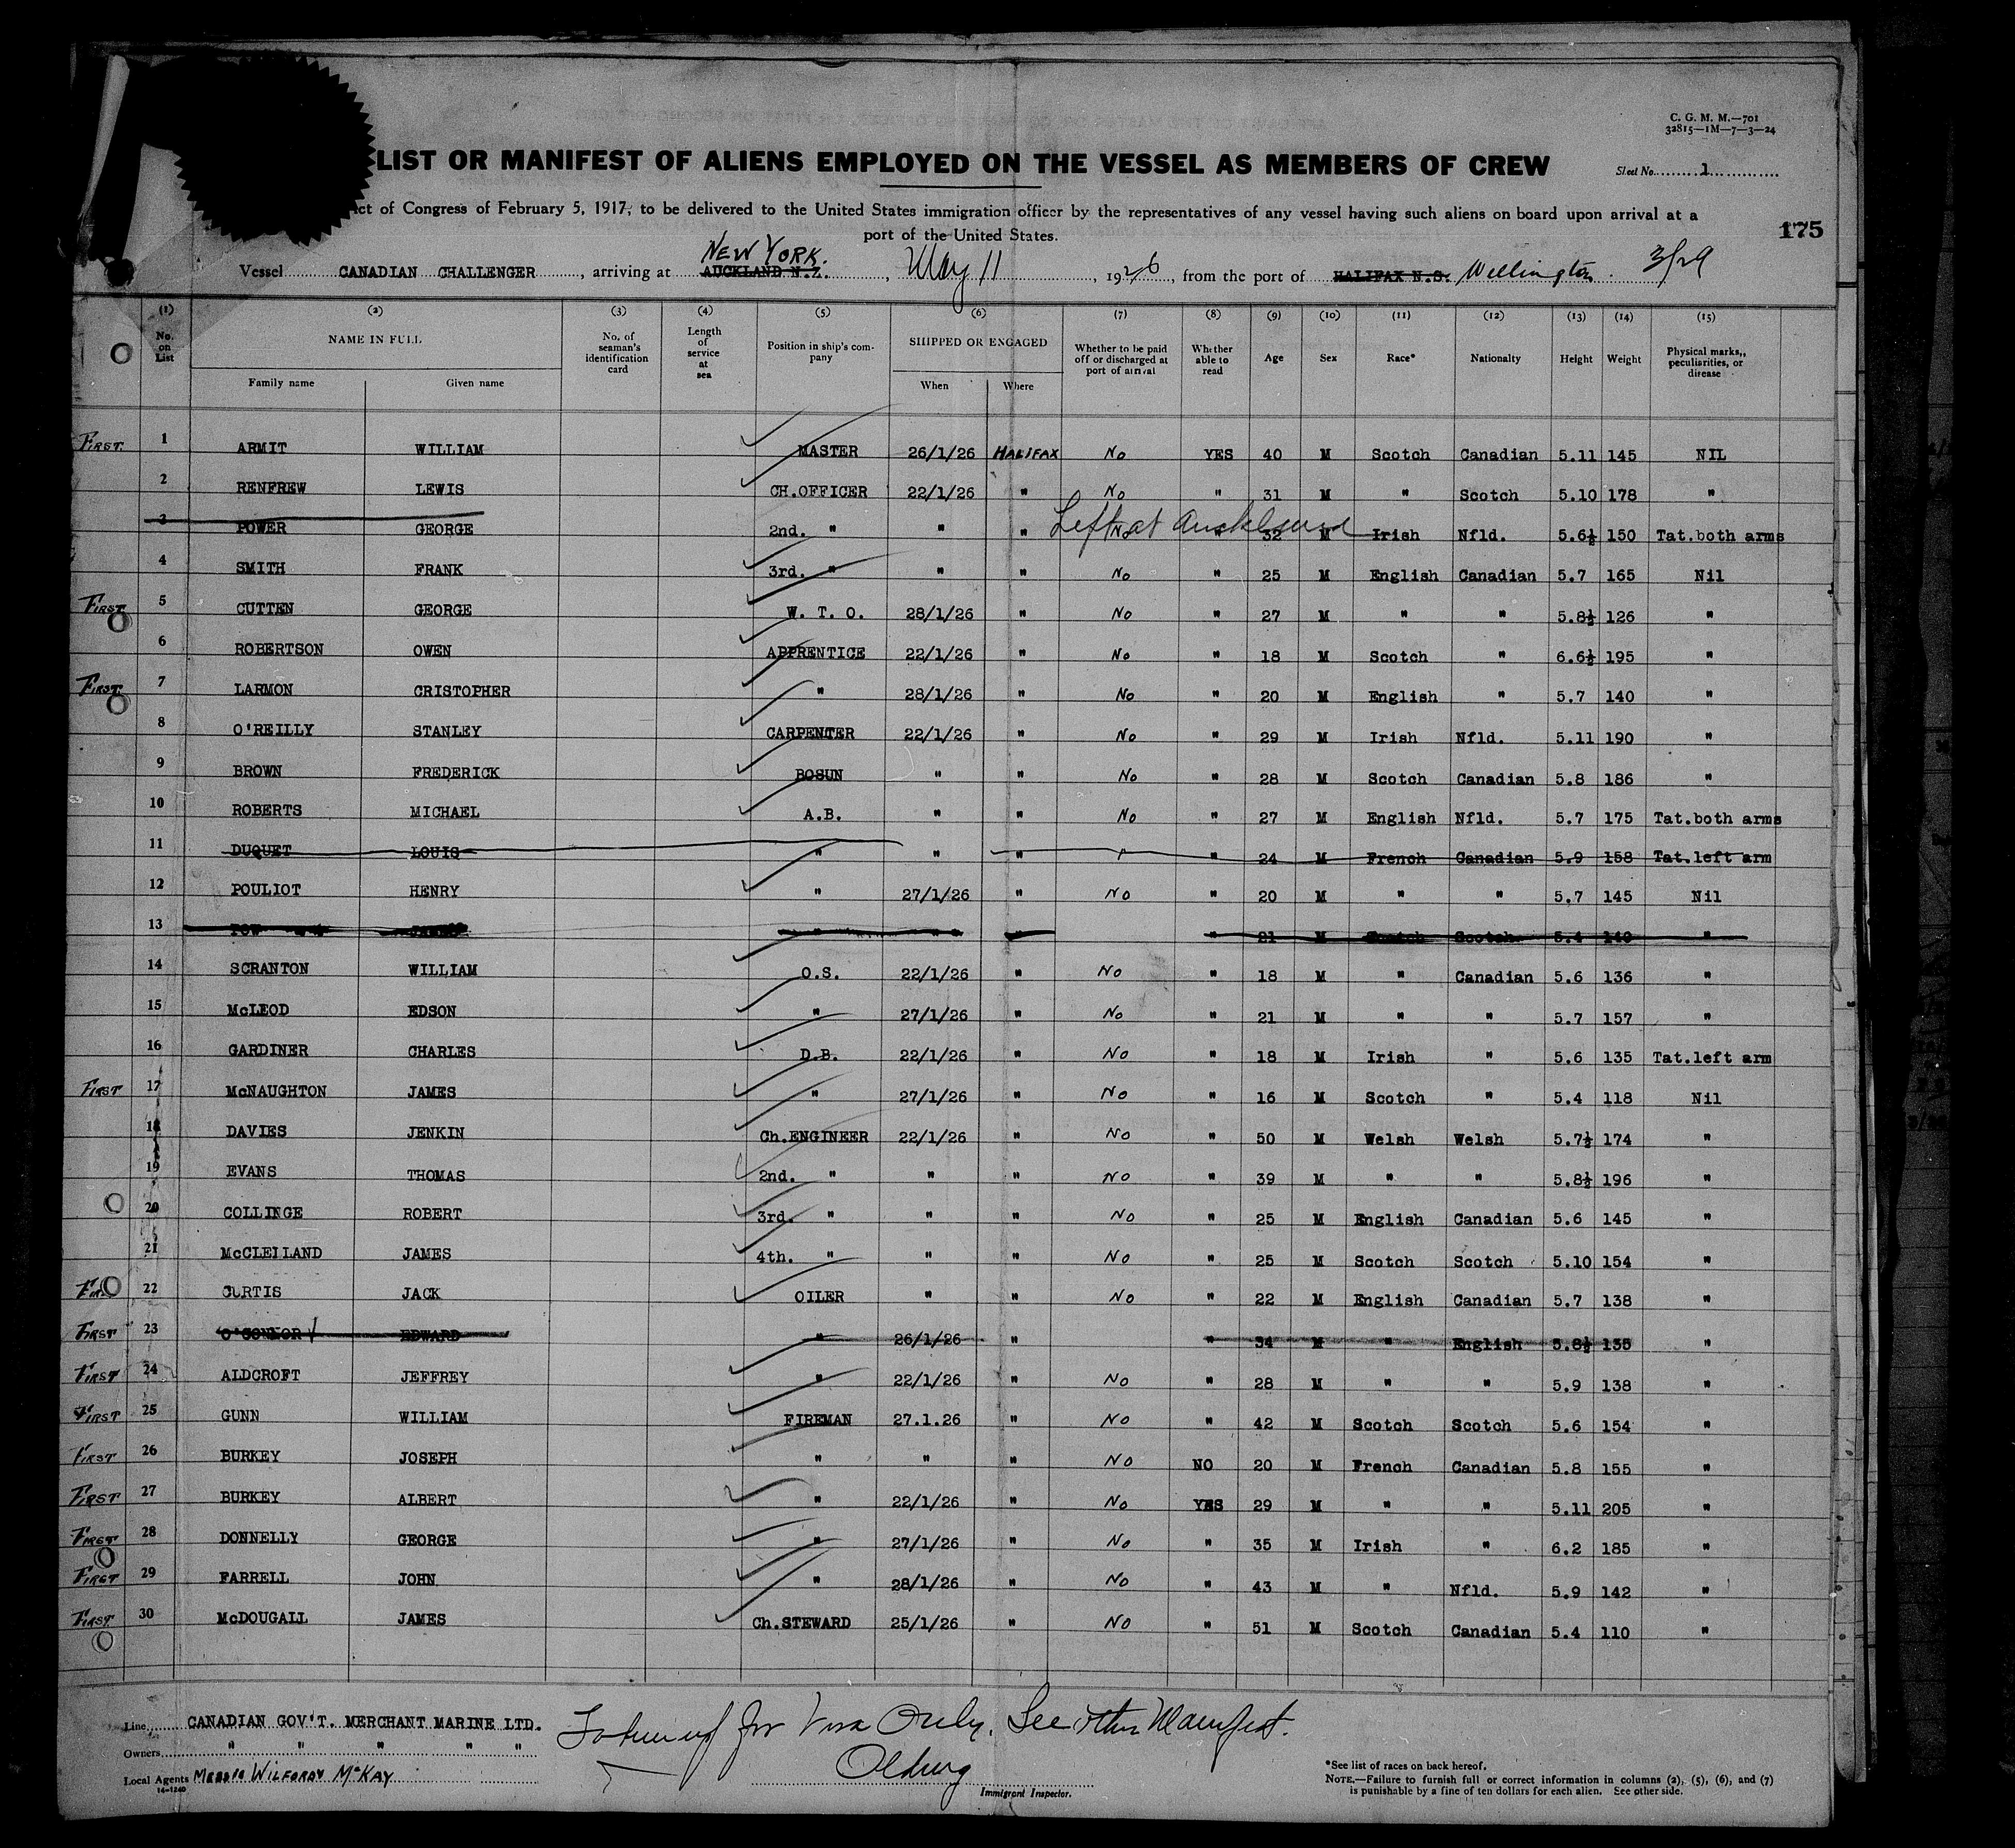 C. G. M. M.—701
32815—1M—7—3—24
LIST OR MANIFEST OF ALIENS EMPLOYED ON THE VESSEL AS MEMBERS OF CREW
Sheet No. 1
Act of Congress of February 5, 1917, to be delivered to the United States immigration officer by the representatives of any vessel having such aliens on board upon arrival at a
port of the United States.
175
NEW YORK.
Vessel CANADIAN CHALLENGER, arriving at AUCKLAND N.Z., May 11, 1926, from the port of HALIFAX N.S. Wellington. 3/29
(1) (2) (3) (4) (5) (6) (7) (8) (9) (10) (11) (12) (13) (14) (15)
No. on List NAME IN FULL No. of seaman's identification card Length of service at sea Position in ship's company SHIPPED OR ENGAGED Whether to be paid off or discharged at port of arrival Whether able to read Age Sex Race* Nationality Height Weight Physical marks, peculiarities, or disease
Family name Given name When Where
First. 1 ARMIT WILLIAM MASTER 26/1/26 HALIFAX No YES 40 M Scotch Canadian 5.11 145 NIL
2 RENFREW LEWIS CH.OFFICER 22/1/26 " No " 31 M " Scotch 5.10 178 "
Left at Auckland
3 POWER GEORGE 2nd. " " " No " 32 M Irish Nfld. 5.6½ 150 Tat.both arms
4 SMITH FRANK 3rd. " " " No " 25 M English Canadian 5.7 165 Nil
First 5 CUTTEN GEORGE W. T. O. 28/1/26 " No " 27 M " " 5.8½ 126 "
6 ROBERTSON OWEN APPRENTICE 22/1/26 " No " 18 M Scotch " 6.6½ 195 "
First 7 LARMON CRISTOPHER " 28/1/26 " No " 20 M English " 5.7 140 "
8 O'REILLY STANLEY CARPENTER 22/1/26 " No " 29 M Irish Nfld. 5.11 190 "
9 BROWN FREDERICK BOSUN " " No " 28 M Scotch Canadian 5.8 186 "
10 ROBERTS MICHAEL A.B. " " No " 27 M English Nfld. 5.7 175 Tat.both arms
11 DUQUET LOUIS " " " " 24 M French Canadian 5.9 158 Tat.left arm
12 POULIOT HENRY " 27/1/26 " No " 20 M " " 5.7 145 Nil
13 " " " 21 M Scotch Scotch 5.4 140 "
14 SCRANTON WILLIAM O.S. 22/1/26 " No " 18 M " Canadian 5.6 136 "
15 McLEOD EDSON " 27/1/26 " No " 21 M " " 5.7 157 "
16 GARDINER CHARLES D.B. 22/1/26 " No " 18 M Irish " 5.6 135 Tat.left arm
First 17 McNAUGHTON JAMES " 27/1/26 " No " 16 M Scotch " 5.4 118 Nil
18 DAVIES JENKIN Ch.ENGINEER 22/1/26 " No " 50 M Welsh Welsh 5.7½ 174 "
19 EVANS THOMAS 2nd. " " " No " 39 M " " 5.8½ 196 "
20 COLLINGE ROBERT 3rd. " " " No " 25 M English Canadian 5.6 145 "
21 McCLELLAND JAMES 4th. " " " No " 25 M Scotch Scotch 5.10 154 "
First 22 CURTIS JACK OILER " " No " 22 M English Canadian 5.7 138 "
First 23 O'CONNOR EDWARD " 26/1/26 " " 34 M " English 5.8½ 135 "
First 24 ALDCROFT JEFFREY " 22/1/26 " No " 28 M " " 5.9 138 "
First 25 GUNN WILLIAM FIREMAN 27.1.26 " No " 42 M Scotch Scotch 5.6 154 "
First 26 BURKEY JOSEPH " " " No NO 20 M French Canadian 5.8 155 "
First 27 BURKEY ALBERT " 22/1/26 " No YES 29 M " " 5.11 205 "
First 28 DONNELLY GEORGE " 27/1/26 " No " 35 M Irish " 6.2 185 "
First 29 FARRELL JOHN " 28/1/26 " No " 43 M " Nfld. 5.9 142 "
First 30 McDOUGALL JAMES Ch.STEWARD 25/1/26 " No " 51 M Scotch Canadian 5.4 110 "
Line CANADIAN GOV'T. MERCHANT MARINE LTD.
Owners " " " " "
Local Agents Messrs Wilford & McKay
14—1240
for Visa Only. See other Manifest.
Immigrant Inspector.
*See list of races on back hereof.
NOTE.—Failure to furnish full or correct information in columns (2), (5), (6), and (7)
is punishable by a fine of ten dollars for each alien. See other side.